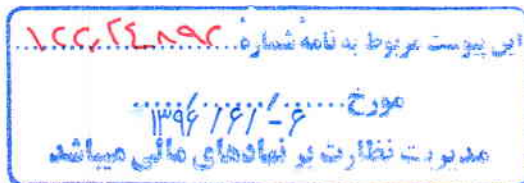 این پیوست مربوط به نامه شماره ۱۲۲/۲۴۸۹۲
مورخ
مدیریت نظارت بر نهادهای مالی میباشد